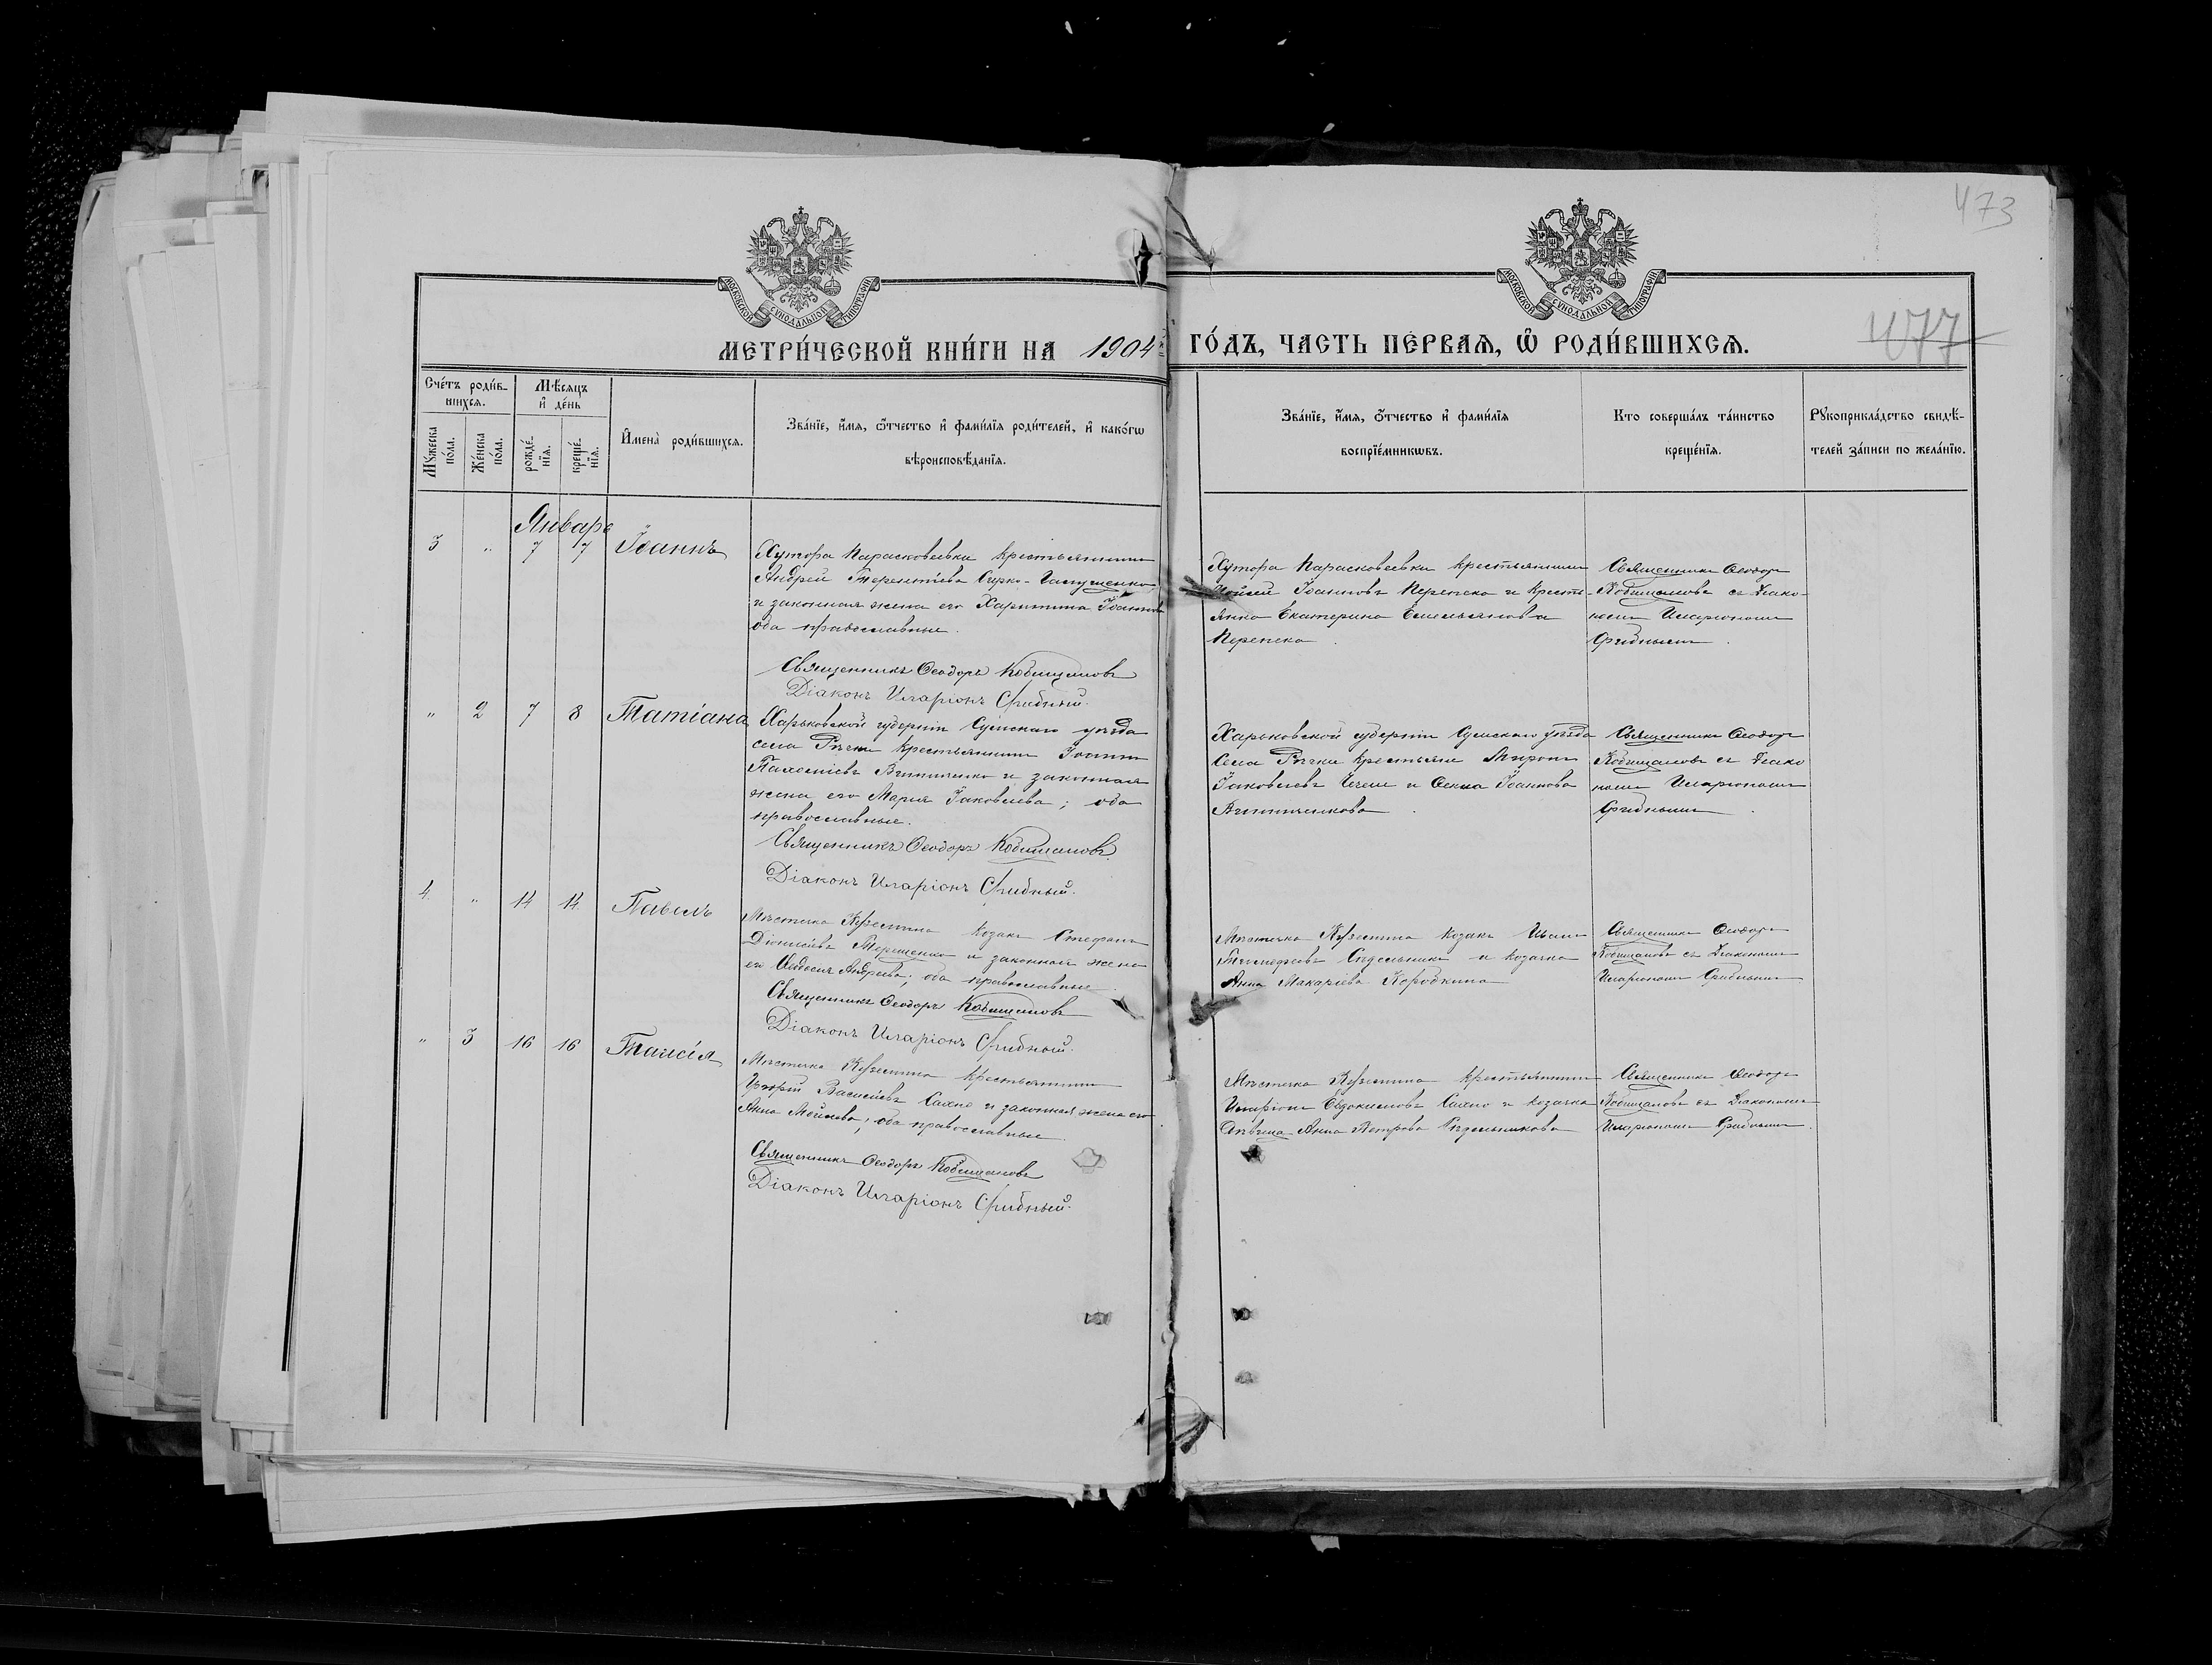 473
477
МОСКОВСКОЙ СѴНОДАЛЬНОЙ ТИПОГРАФІИ
МОСКОВСКОЙ СѴНОДАЛЬНОЙ ТИПОГРАФІИ
МЕТРИ́ЧЕСКОЙ КНИ́ГИ НА 1904 ГО́ДЪ, ЧАСТЬ ПЕ́РВАЯ, Ѡ҆ РОДИ́ВШИХСЯ.
Сче́тъ роди́в-
шихся.
Му́жеска
по́ла.
Же́нска
по́ла.
Мѣ́сяцъ
и҆ де́нь
рожде́-
нїя.
креще́-
нїя.
И҆мена̀ роди́вшихся.
Зва́нїе, и҆́мя, ѻ҆́тчество и҆ фами́лїя роди́телей, и҆ како́гѡ
вѣроисповѣ́данїя.
Зва́нїе, и҆́мя, ѻ҆́тчество и҆ фами́лїя
воспрїе́мникѡвъ.
Кто соверша́лъ та́инство
креще́нїя.
Рукоприкла́дство свидѣ́-
телей за́писи по жела́нїю.
Январь
3 " 7 7 Іоаннъ
Хутора Парасковеевки крестьянинъ
Андрей Терентіевъ Сирко-
и законная жена его Харитина Іоаннова
оба православные.
Священникъ Ѳеодоръ Кобищановъ
Діаконъ Иларіонъ Срибный.
Хутора Парасковеевки крестьянинъ
Мойсей Іоанновъ Перепека и кресть-
янка Екатерина Емельянова
Перепека.
Священникъ Ѳеодоръ
Кобищановъ съ Діако-
номъ Иларіономъ
Срибнымъ.
" 2 7 8 Татіана
Харьковской губерніи Сумскаго уѣзда
села Рѣчки крестьянинъ Іоаннъ
Пахоміевъ Винниченко и законная
жена его Марія Іаковлева; оба
православные.
Священникъ Ѳеодоръ Кобищановъ.
Діаконъ Иларіонъ Срибный.
Харьковской губерніи Сумскаго уѣзда
села Рѣчки крестьяне Миронъ
Іаковлевъ и Ѳекла Іоаннова
Винниченкова.
Священникъ Ѳеодоръ
Кобищановъ съ Діако
номъ Иларіономъ
Срибнымъ.
4 " 14 14 Павелъ
Мѣстечка козакъ Стефанъ
Діонисіевъ Терещенко и законная жена
его Андреева; оба православные.
Священникъ Ѳеодоръ Кобищановъ
Діаконъ Иларіонъ Срибный.
Мѣстечка козакъ Иванъ
Тимофеевъ Сѣдельникъ и козачка
Анна Макаріева Коробкина
Священникъ Ѳеодоръ
Кобищановъ съ Діакономъ
Иларіономъ Срибнымъ
" 3 16 16 Таисія
Мѣстечка крестьянинъ
Василіевъ Сахно и законная жена его
Анна Мойсеева; оба православные.
Священникъ Ѳеодоръ Кобищановъ
Діаконъ Иларіонъ Срибный.
Мѣстечка крестьянинъ
Иларіонъ Евдокимовъ Сахно и козачка
дѣвица Анна Петрова Сѣдельникова
Священникъ Ѳеодоръ
Кобищановъ съ Діакономъ
Иларіономъ Срибнымъ.